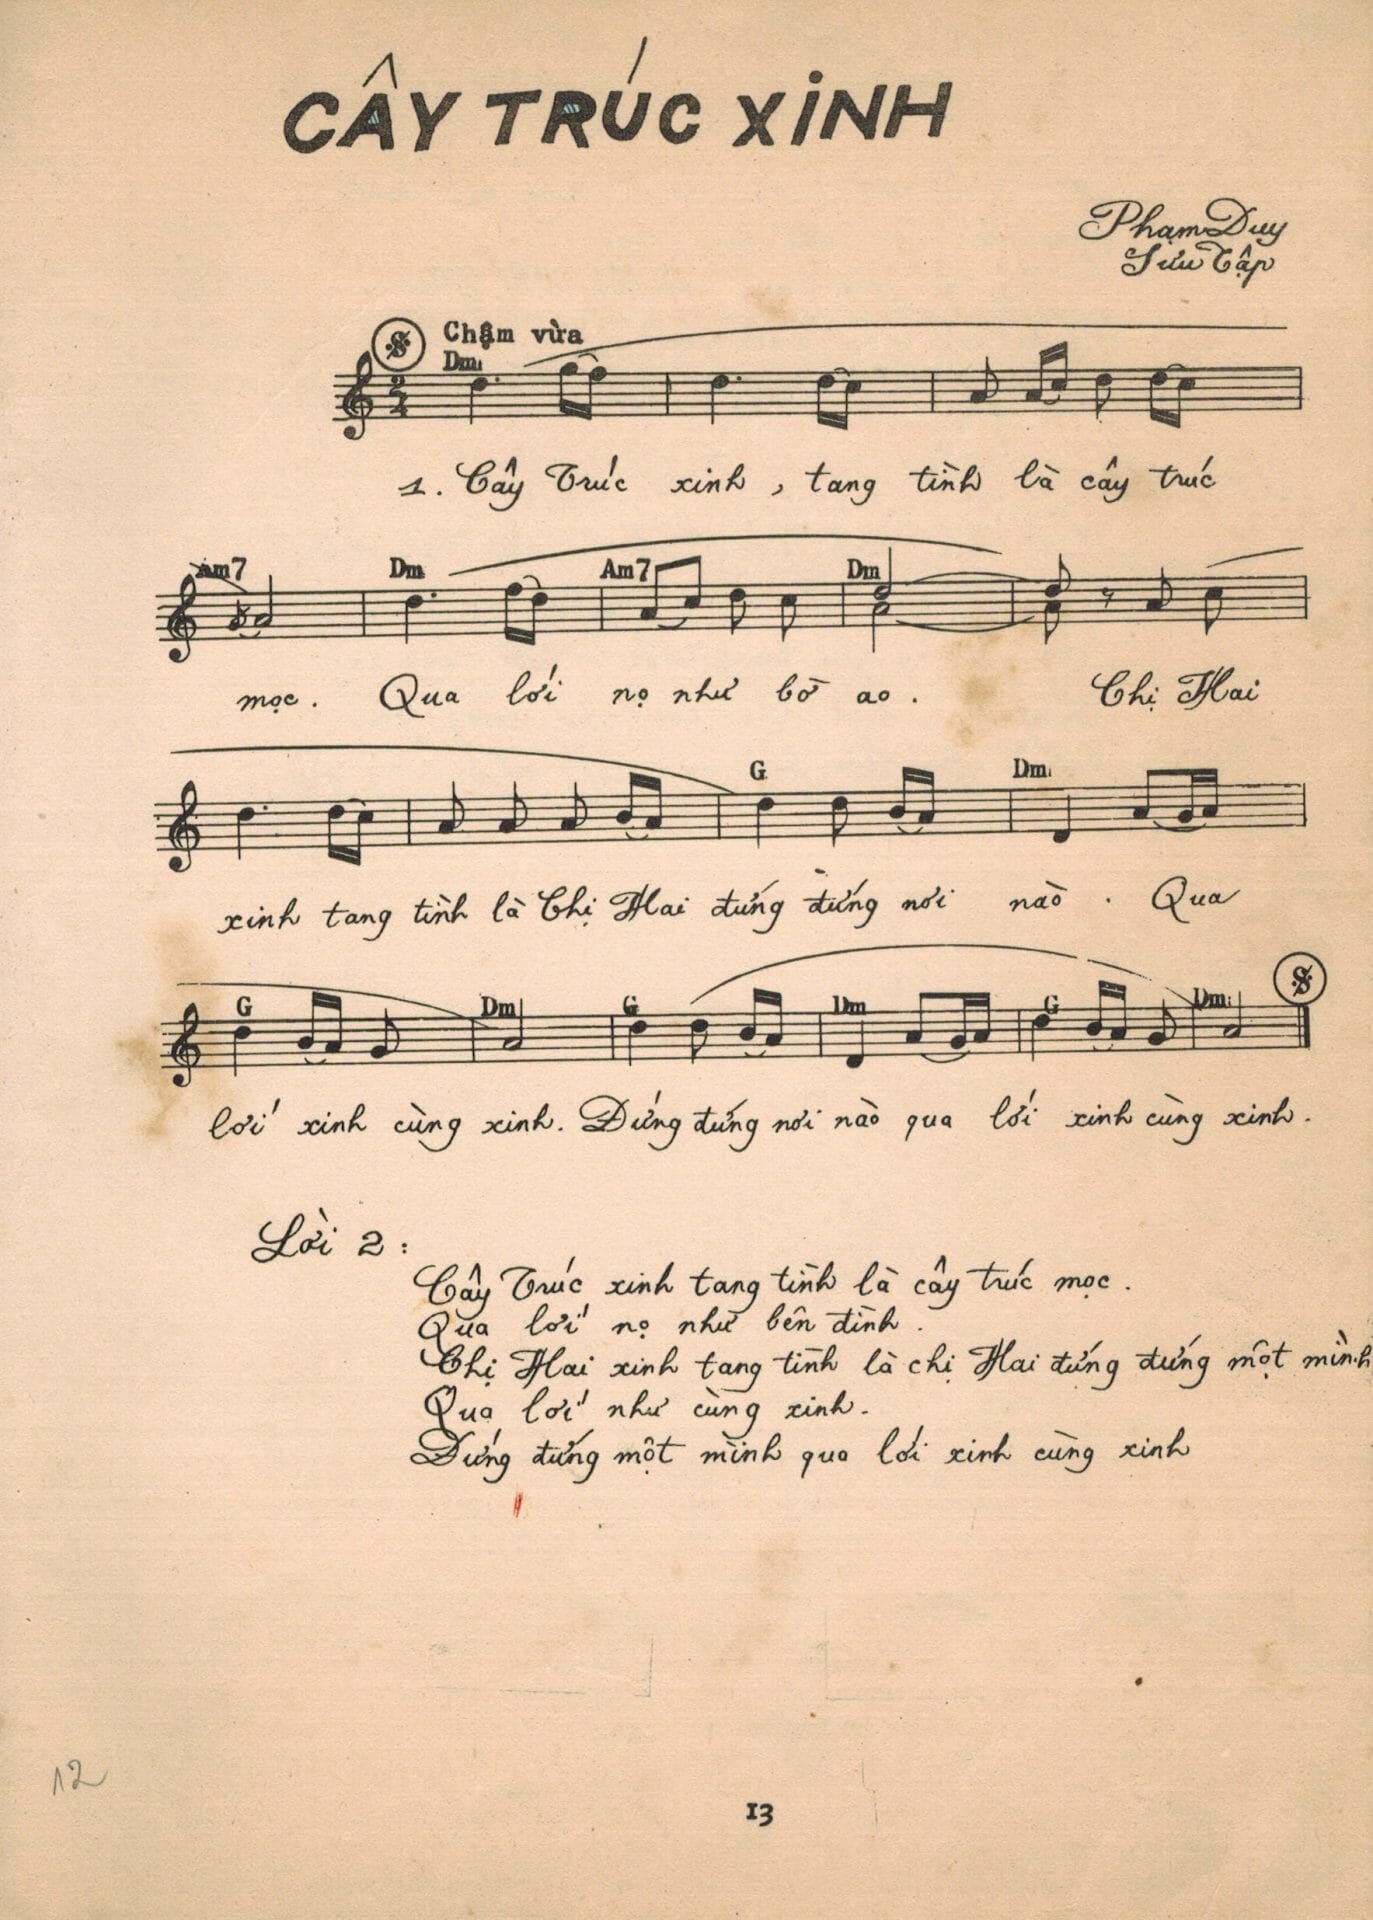 CÂY TRÚC XINH
Phạm Duy
Sưu Tập
Chậm vừa
Dm
2
4
1. Cây Trúc xinh, tang tình là cây trúc
Am7 Dm Am7 Dm
mọc. Qua lối nọ như bờ ao. Chị Hai
G Dm
xinh tang tình là Chị Hai đứng đứng nơi nào. Qua
G Dm G Dm G Dm
lối xinh cùng xinh. Đứng đứng nơi nào qua lối xinh cùng xinh.
Lời 2:
Cây Trúc xinh tang tình là cây trúc mọc.
Qua lối nọ như bên đình.
Chị Hai xinh tang tình là chị Hai đứng đứng một mình
Qua lối như cùng xinh.
Đứng đứng một mình qua lối xinh cùng xinh
12
13